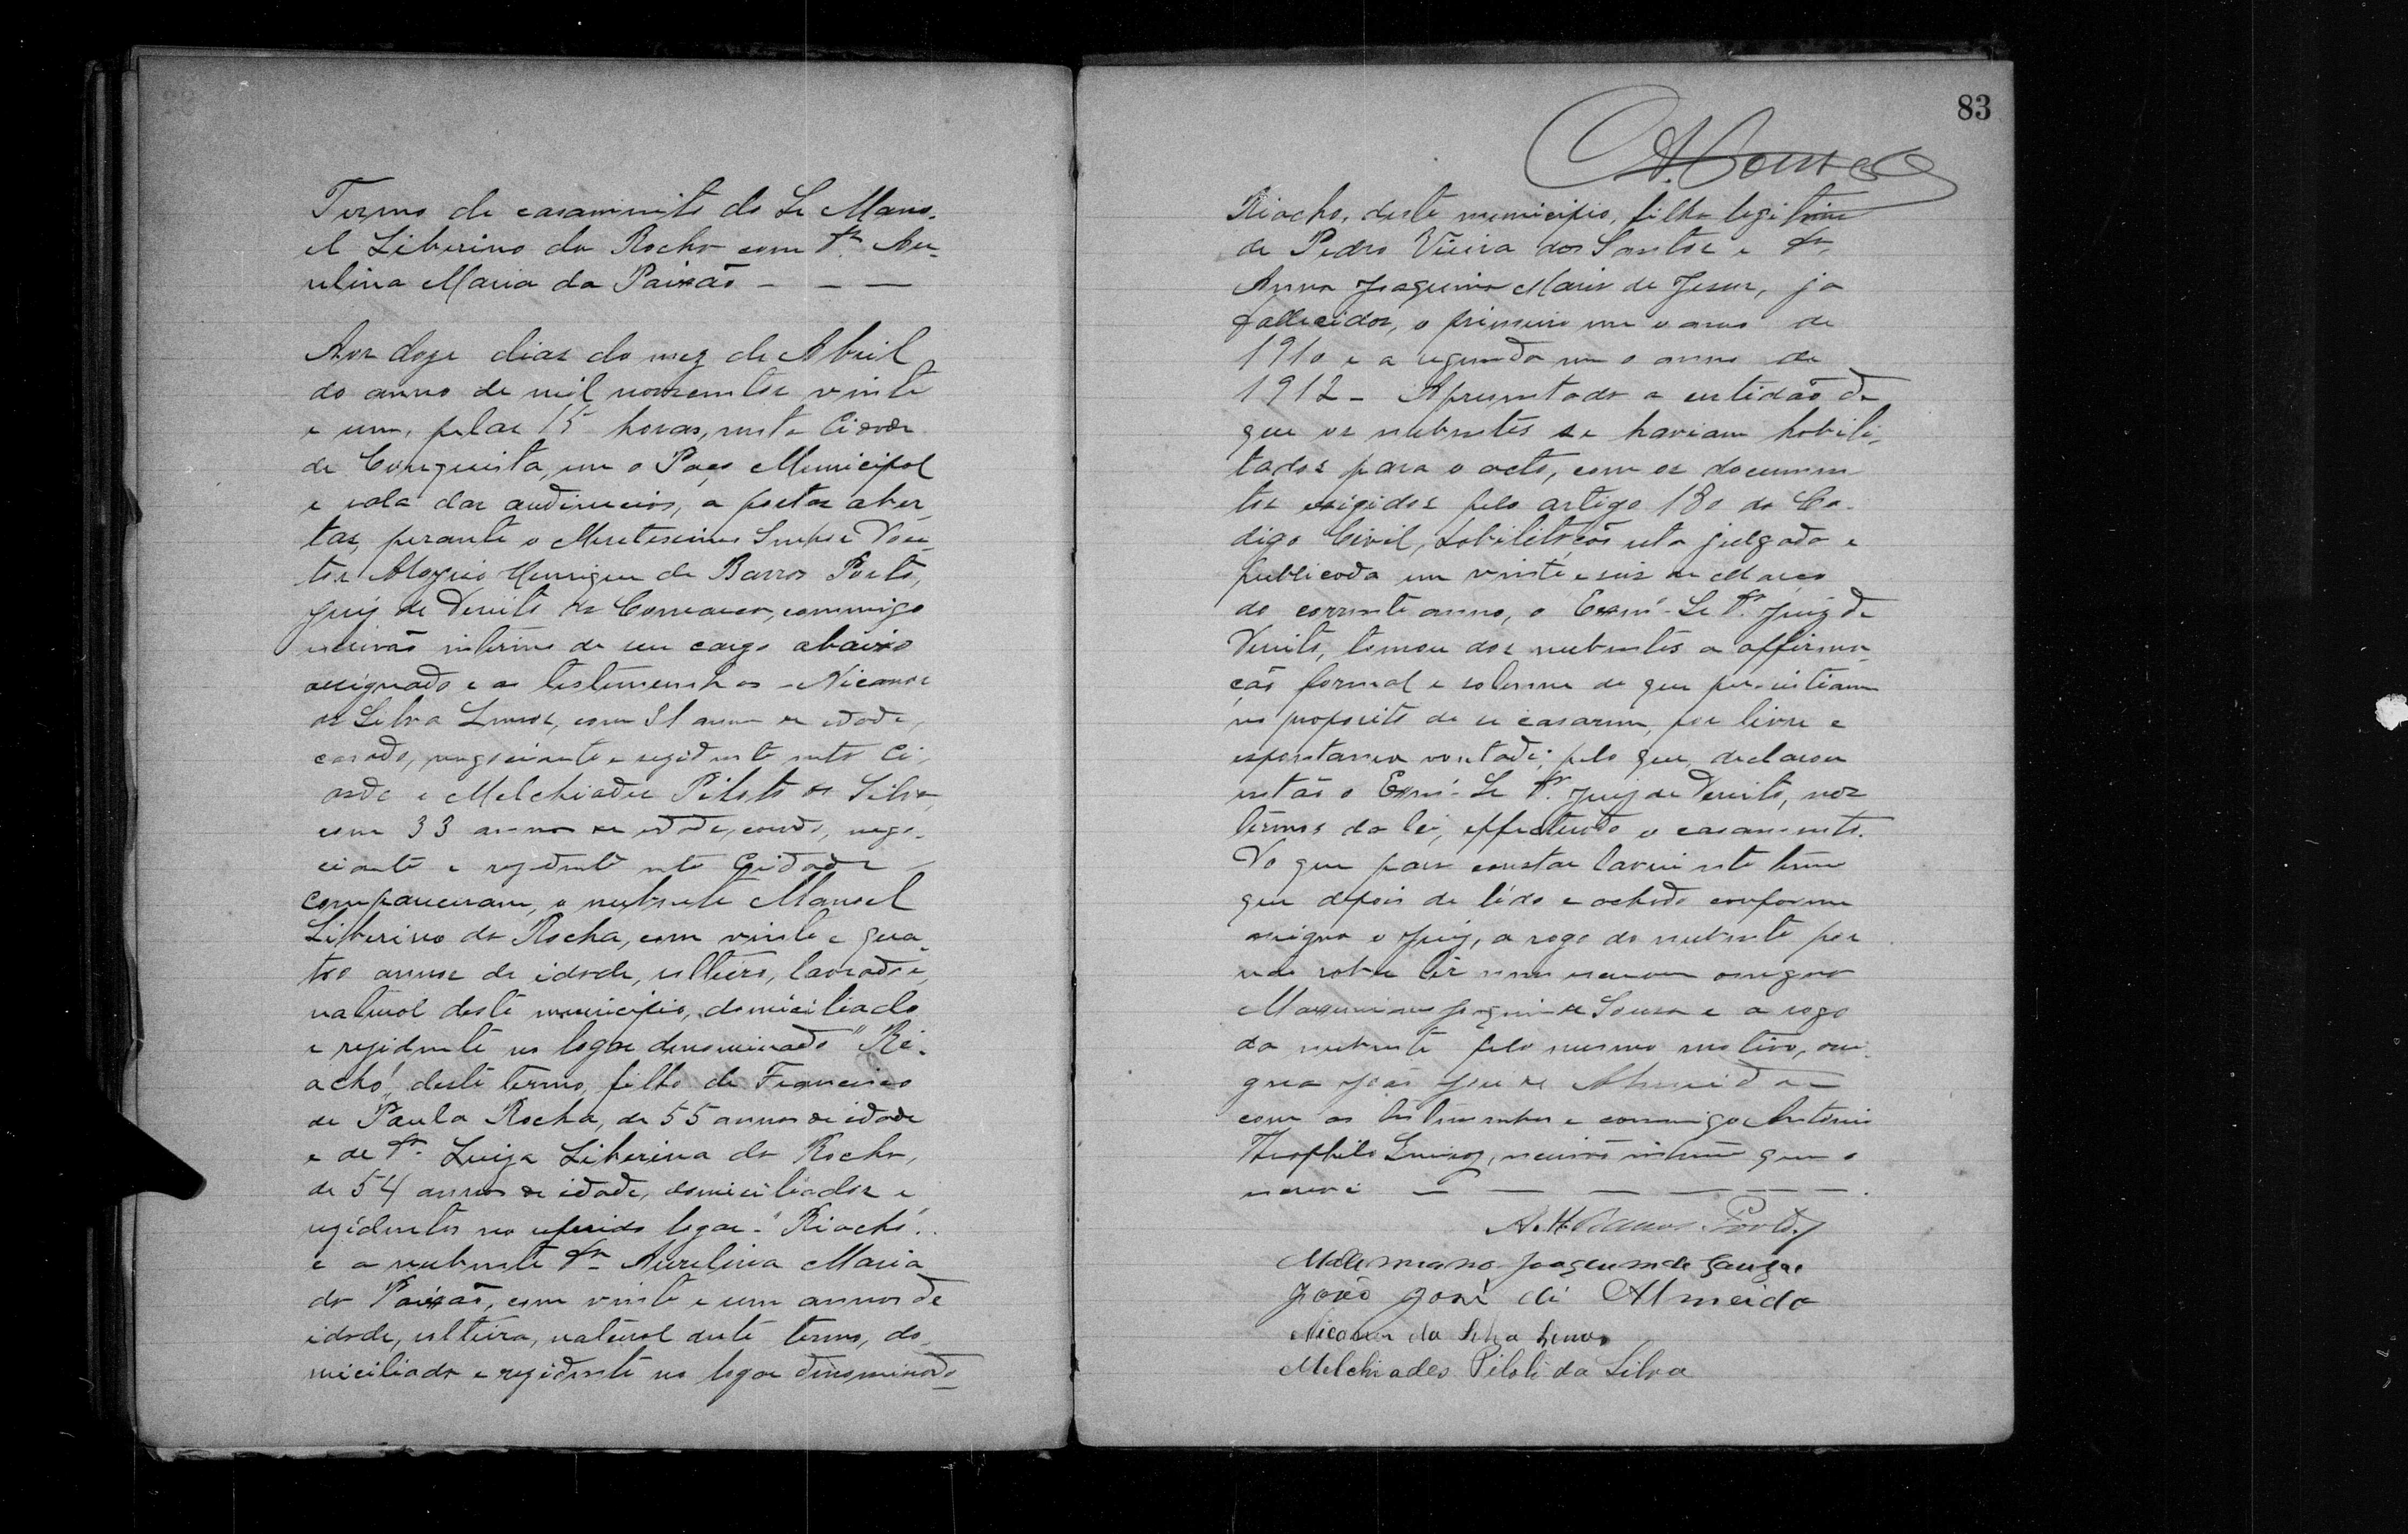 Termo de casamento do Sr Mano-
el Liberino da Rocha com Dª. Au-
relina Maria da Paixão - - -
Aos doze dias do mez de Abril
do anno de mil novecentos vinte
e um, pelas 15 horas, nesta Cidade
de Conquista, em o Paço Municipal
e sala das audiencias, a portas aber-
tas, perante o Meretissimo Senhor Dou-
tor Aloysio Henrique de Barros Porto,
Juiz de Direito da Comarca, commigo
escrivão interino de seu cargo abaixo
assignado e as testemunhas - Nicanor
da Silva Lemos, com 31 annos de edade,
casado, negociante e rezidente nesta Ci-
dade e Melchiades Piloto da Silva,
com 33 annos de edade, casado, nego-
ciante e rezidente nesta Cidade
compareceram, o nubente Manoel
Liberino da Rocha, com vinte e qua-
tro annos de idade, solteiro, lavrador,
natural deste municipio, domiciliado
e rezidente no logar denominado "Ri-
acho", deste termo, filho de Francisco
de Paula Rocha, de 55 annos de idade
e de Dª. Luiza Liberina da Rocha,
de 54 annos de idade, domiciliados e
rezidentes no referido logar - "Riacho"..
e a nubente Dª Aurelina Maria
da Paixão, com vinte e um annos de
idade, solteira, natural deste termo, do-
miciliada e rezidente no logar denominado
83
Riacho, deste municipio, filha legitima
de Pedro Vieira dos Santos e Dª
Anna Joaquina Maria de Jesus, ja
fallecidos, o primeiro em o anno de
1910 e a segunda em o anno de
1912 - Apresentada a certidão de
que os nubentes se haviam habili-
tados para o acto, com os documen-
tos exigidos pelo artigo 180 do Co-
digo Civil, habilitação esta julgada e
publicada em vinte e seis de Março
do corrente anno, o Exmº Sr Dr. Juiz de
Direito, tomou dos nubentes a affirma-
ção formal e solemne de que persistiam
no proposito de se casarem, por livre e
espontanea vontade; pelo que, declarou
então o Exmº Sr Dr. Juiz de Direito, nos
termos da lei, effectuado o casamento.
Do que para constar lavrei este termo
que depois de lido e achado conforme
assigna o Juiz, a rogo do nubente por
não saber ler nem escrever assigna
Maximiano Joaquim de Sousa e a rogo
da nubente pelo mesmo motivo, assi-
gna João José de Almeida
com as testemunhas e commigo Antonio
Theophilo Lemos, escrivão interino que o
escrevi - - - - - - -.
A. H. Barros Porto
Joaquim de Souza
João José de Almeida
Nicanor da Silva Lemos
Melchiades Piloto da Silva